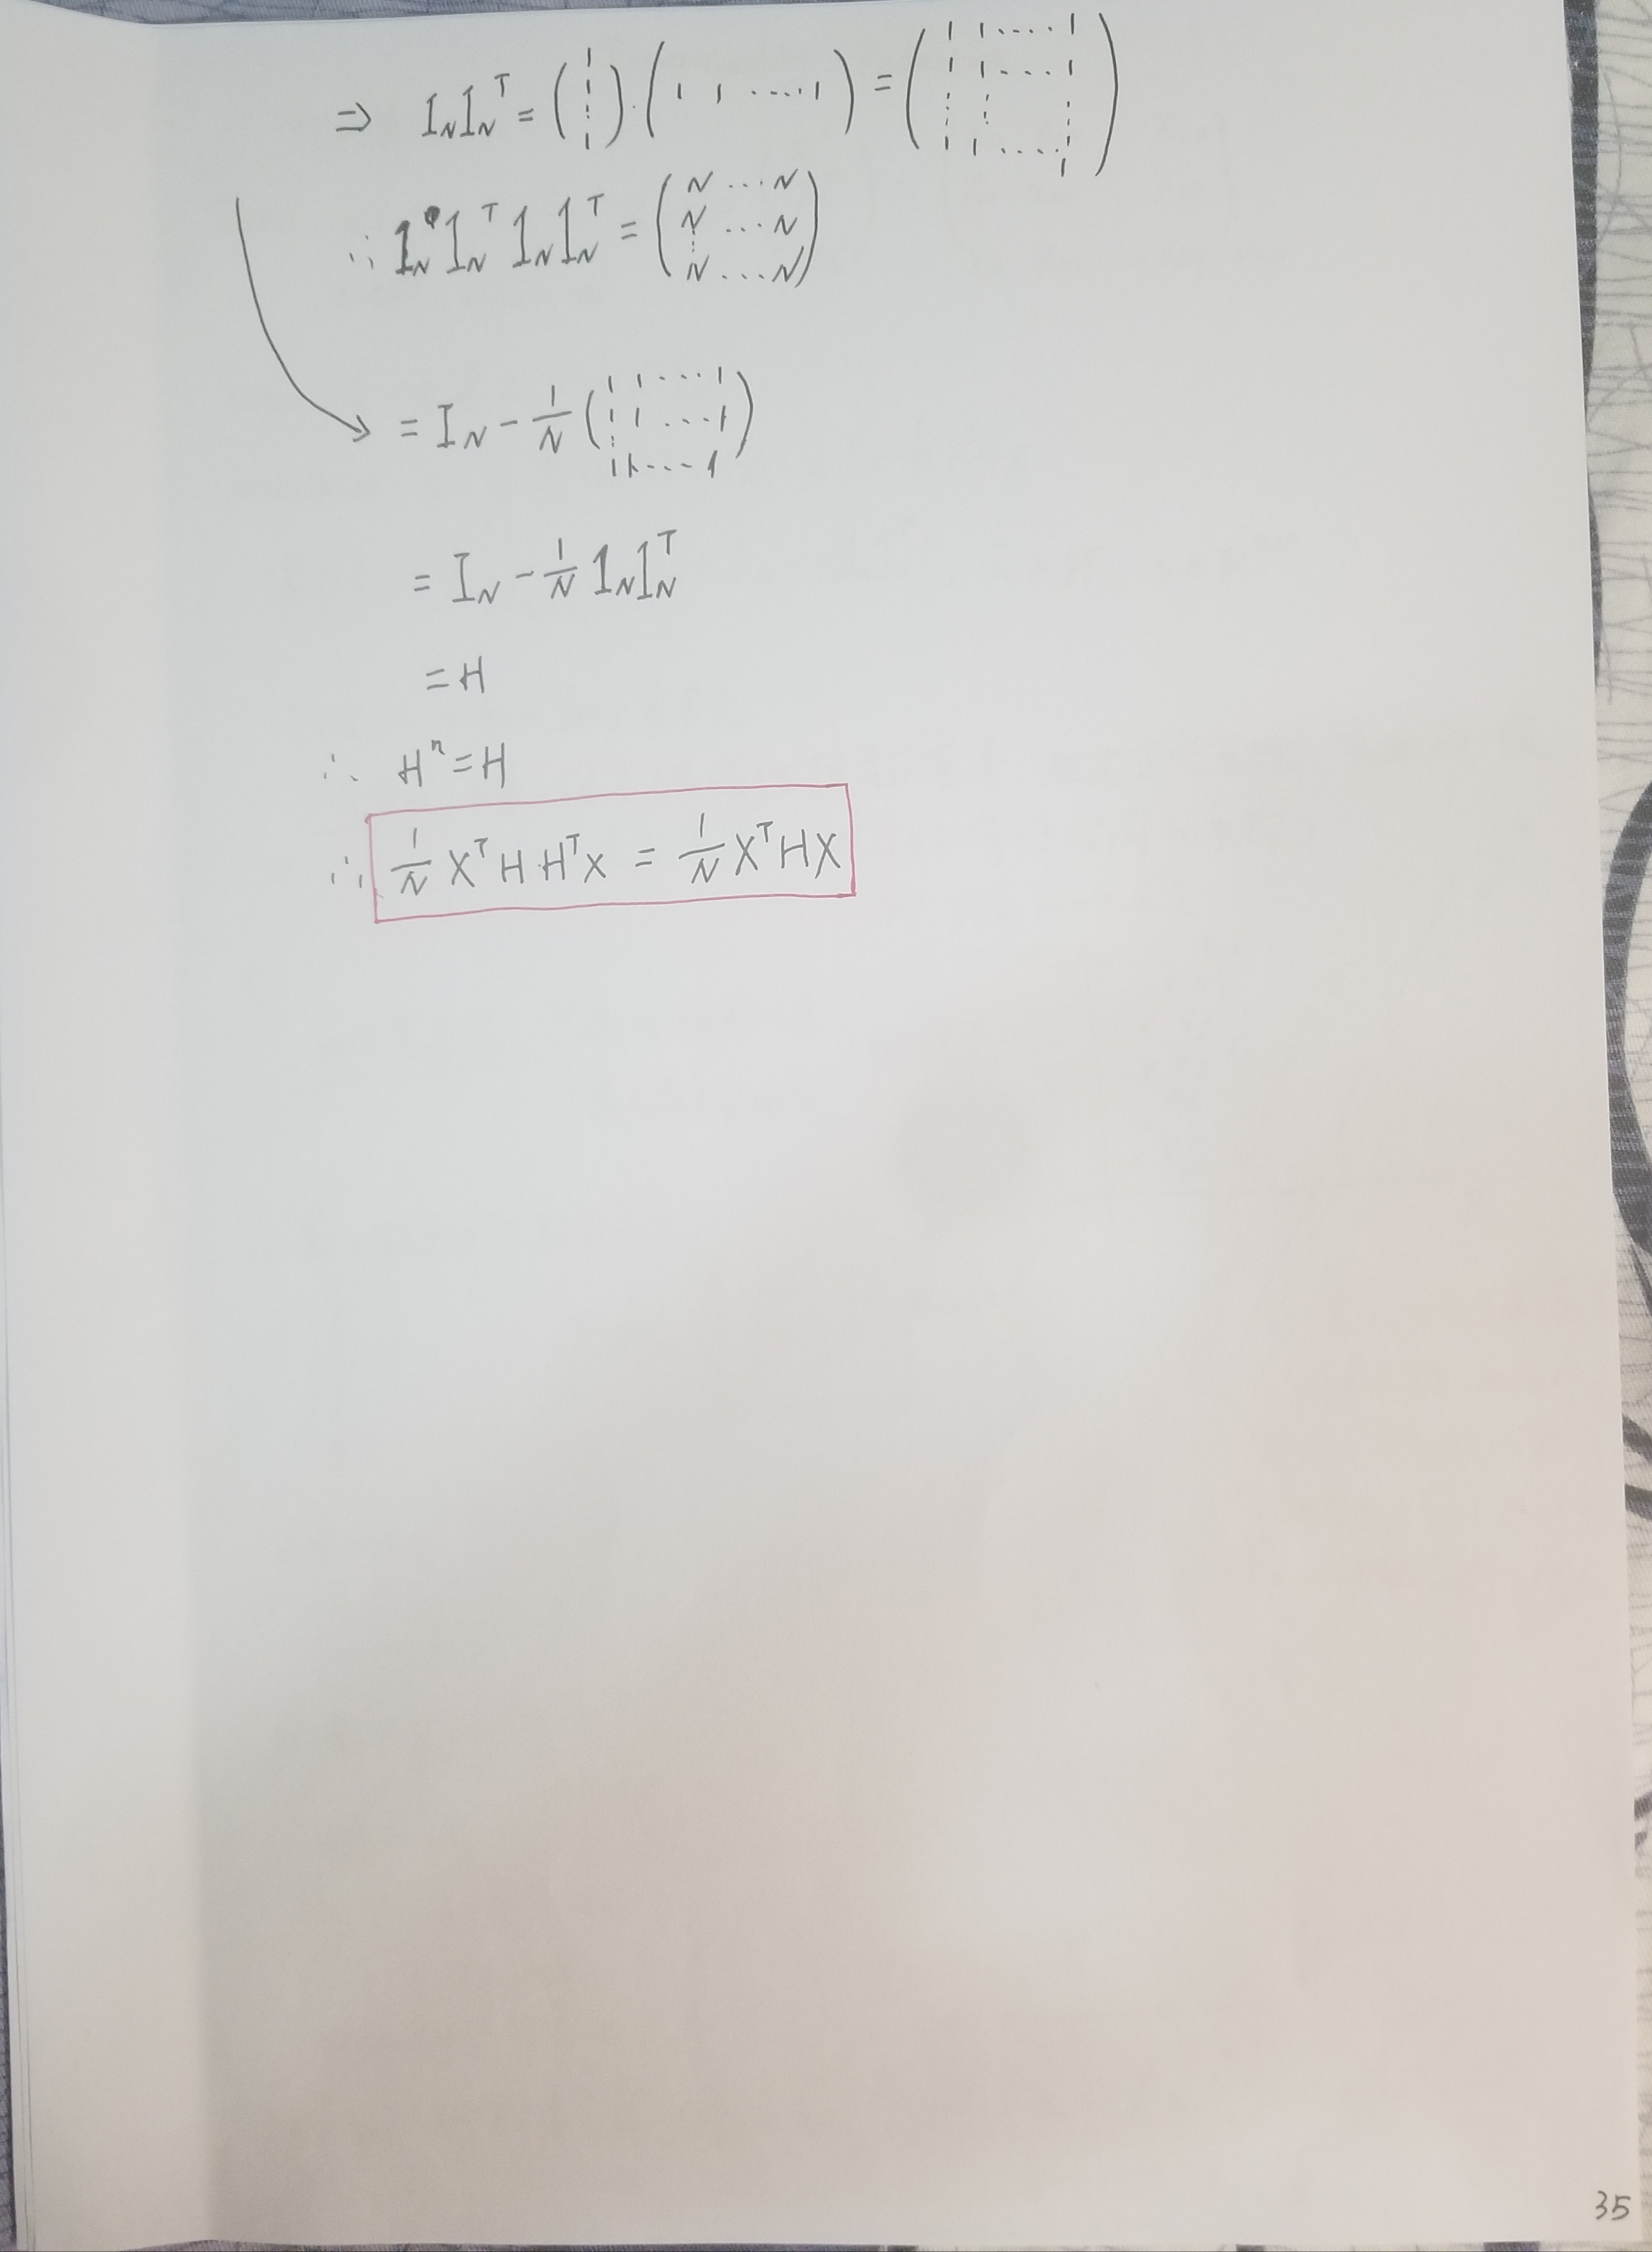 ⇒ 1_N 1_N^T = (1 ⋮ 1) · (1 1 ..... 1) = (1 1 .... 1 / 1 1 .... 1 / ⋮ ⋮ ⋮ / 1 1 .... 1)
∵ 1_N 1_N^T 1_N 1_N^T = (N ... N / N ... N / ⋮ / N .... N)
= I_N - 1/N (1 1 .... 1 / 1 1 .... 1 / ⋮ / 1 1 ... 1)
= I_N - 1/N 1_N 1_N^T
= H
∴ H^n = H
∴ 1/N X^T H · H^T X = 1/N X^T H X
35